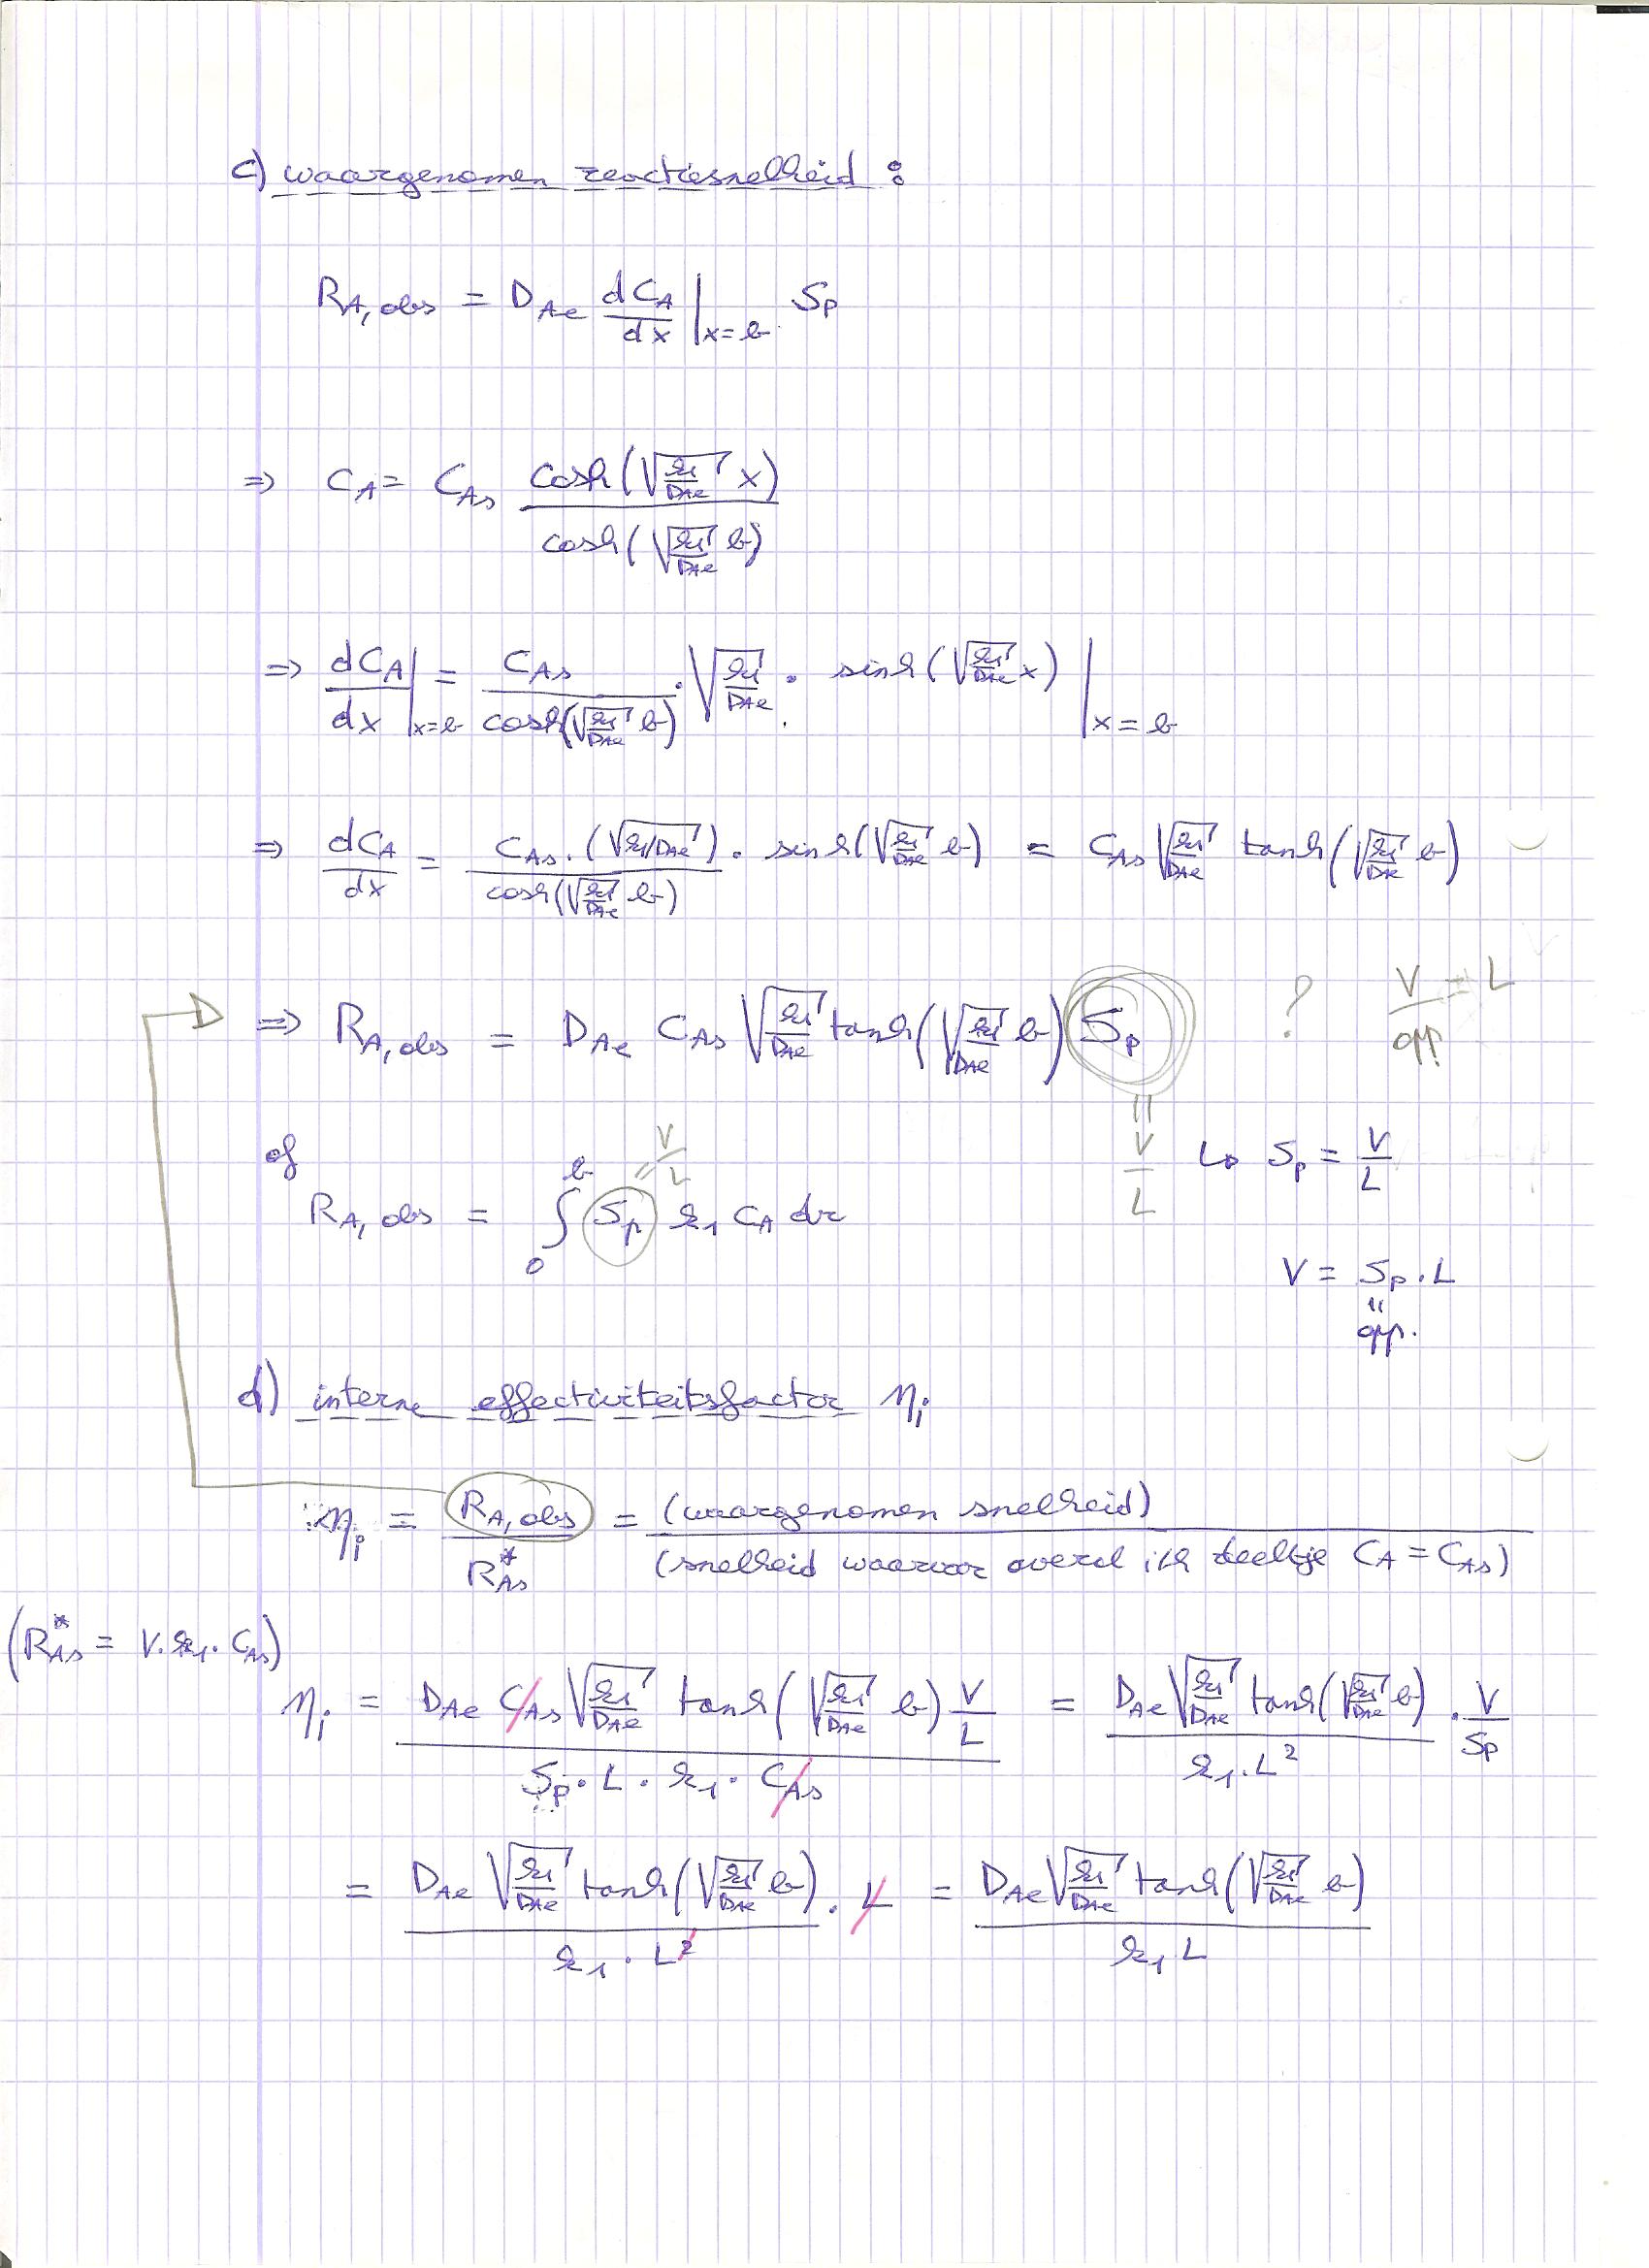 c) waargenomen reactiesnelheid :
R_A,obs = D_Ae dC_A/dx |x=b S_p
⇒ C_A = C_As cosh(√(k₁/D_Ae) x) / cosh(√(k₁/D_Ae) b)
⇒ dC_A/dx |x=b = C_As / cosh(√(k₁/D_Ae) b) · √(k₁/D_Ae) · sinh(√(k₁/D_Ae) x) |x=b
⇒ dC_A/dx = C_As · (√(k₁/D_Ae)) / cosh(√(k₁/D_Ae) b) · sinh(√(k₁/D_Ae) b) = C_As √(k₁/D_Ae) tanh(√(k₁/D_Ae) b)
⇒ R_A,obs = D_Ae C_As √(k₁/D_Ae) tanh(√(k₁/D_Ae) b) S_p ? V/opp = L
= V/L ↳ S_p = V/L
of
R_A,obs = ∫₀ᵇ S_p k₁ C_A dx
= V/L
V = S_p . L
= opp.
d) interne effectiviteitsfactor η_i
η_i = R_A,obs / R*_As = (waargenomen snelheid) / (snelheid waarvoor overal i/h deeltje C_A = C_As)
(R*_As = V . k₁ . C_As)
η_i = D_Ae C_As √(k₁/D_Ae) tanh(√(k₁/D_Ae) b) V/L / S_p · L · k₁ · C_As = D_Ae √(k₁/D_Ae) tanh(√(k₁/D_Ae) b) / k₁ . L² . V/S_p
= D_Ae √(k₁/D_Ae) tanh(√(k₁/D_Ae) b) / k₁ . L² . L = D_Ae √(k₁/D_Ae) tanh(√(k₁/D_Ae) b) / k₁ L